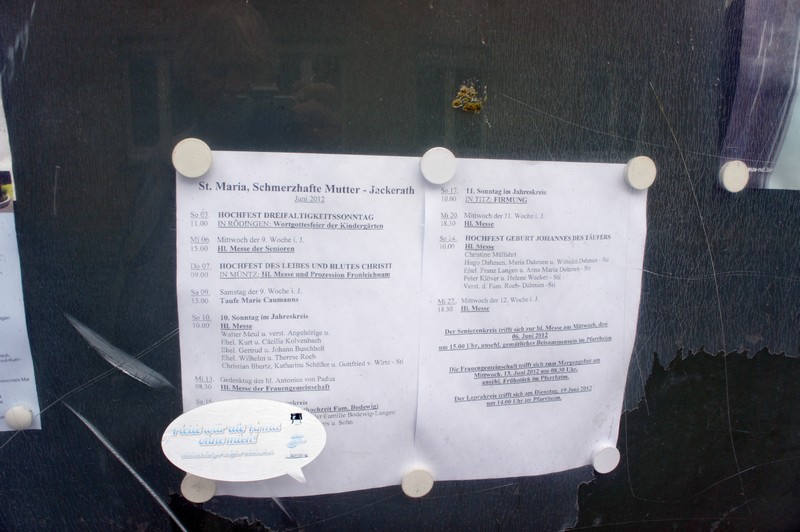 St. Maria, Schmerzhafte Mutter - Jackerath
Juni 2012
So 03. HOCHFEST DREIFALTIGKEITSSONNTAG
11.00 IN RÖDINGEN: Wortgottesfeier der Kindergärten
Mi 06. Mittwoch der 9. Woche i. J.
15.00 Hl. Messe der Senioren
Do 07. HOCHFEST DES LEIBES UND BLUTES CHRISTI
09.00 IN MÜNTZ: Hl. Messe und Prozession Fronleichnam
Sa 09. Samstag der 9. Woche i. J.
15.00 Taufe Marie Caumanns
So 10. 10. Sonntag im Jahreskreis
10.00 Hl. Messe
Walter Meul u. verst. Angehörige u.
Ehel. Kurt u. Cäcilia Kolvenbach
Ehel. Gertrud u. Johann Buschhoff
Ehel. Wilhelm u. Therese Roeb
Christian Ebertz, Katharina Schiffer u. Gottfried v. Wirtz - Sti
Mi 13. Gedenktag des hl. Antonius von Padua
08.30 Hl. Messe der Frauengemeinschaft
Fam. Bodewig)
Familie Bodewig-Langen
u. Sohn
So 17. 11. Sonntag im Jahreskreis
10.00 IN TITZ: FIRMUNG
Mi 20. Mittwoch der 11. Woche i. J.
18.30 Hl. Messe
So 24. HOCHFEST GEBURT JOHANNES DES TÄUFERS
10.00 Hl. Messe
Christine Mülfahrt
Hugo Dahmen, Maria Dahmen u. Wilhelm Dahmen - Sti
Ehel. Franz Langen u. Anna Maria Dahmen - Sti
Peter Klöver u. Helene Wacker - Sti
Verst. d. Fam. Roeb- Dahmen - Sti
Mi 27. Mittwoch der 12. Woche i. J.
18.30 Hl. Messe
Der Seniorenkreis trifft sich zur hl. Messe am Mittwoch, den
06. Juni 2012
um 15.00 Uhr, anschl. gemütliches Beisammensein im Pfarrheim
Die Frauengemeinschaft trifft sich zum Morgengebet am
Mittwoch, 13. Juni 2012 um 08.30 Uhr,
anschl. Frühstück im Pfarrheim.
Der Leprakreis trifft sich am Dienstag, 19 Juni 2012
um 14.00 Uhr im Pfarrheim.